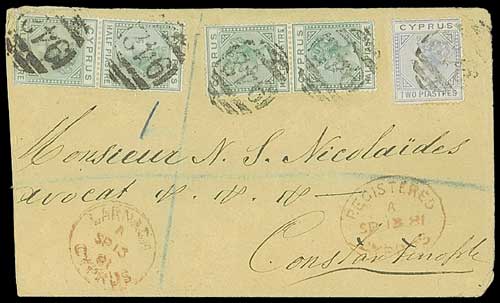 CYPRUS
HALF PIASTRE
942
CYPRUS
HALF PIASTRE
942
CYPRUS
942
CYPRUS
HALF PIASTRE
942
CYPRUS
TWO PIASTRES
1
Monsieur N. S. Nicolaïdes
avocat &. &. &. —
Constantinople
LARNACA
A
SP 13
81
CYPRUS
REGISTERED
SP 13 81